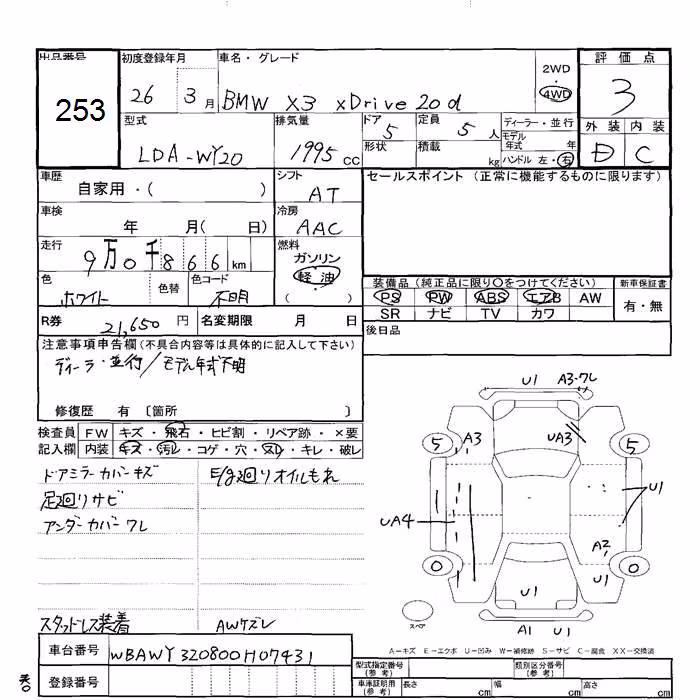 出品番号 初度登録年月 車名・グレード 2WD 評価点
253 26 3月 BMW X3 xDrive 20d 4WD 3
型式 排気量 ドア 定員 ディーラー・並行 外装 内装
5 5人 モデル年式 年
LDA-WY20 1995cc 形状 積載 kg ハンドル 左・右 D C
車歴 シフト セールスポイント (正常に機能するものに限ります)
自家用・( ) AT
車検 冷房
年 月( 日) AAC
走行 燃料
9万0千866km ガソリン
色 色替 色コード 軽油 装備品(純正品に限り○をつけてください) 新車保証書
ホワイト 不明 ( ) PS PW ABS エアB AW 有・無
SR ナビ TV カワ
R券 21,650円 名変期限 月 日 後日品
注意事項申告欄(不具合内容等は具体的に記入して下さい)
ディーラ・並行/モデル年式不明
修復歴 有 〔箇所 〕
検査員 FW キズ・飛石・ヒビ割・リペア跡・×要
記入欄 内装 キズ・汚レ・コゲ・穴・スレ・キレ・破レ
ドアミラーカバーキズ E/g廻りオイルもれ
足廻りサビ
アンダーカバーワレ
スタッドレス装着 AWキズレ
U1 A3-ワレ
5 A3 UA3 5
UA4 U1
A2
0 U1 U1 0
スペア A1 U1
A=キズ E=エクボ U=凹み W=補修跡 S=サビ C=腐食 XX=交換済
車台番号 WBAWY320800H07431
登録番号
型式指定番号(参考) 類別区分番号(参考)
車庫証明用(参考) 長さ cm 幅 cm 高さ cm